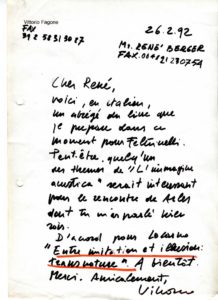 Vittorio Fagone
FAX
39 2 58313087
26.2.92
Mr. RENÉ BERGER
FAX.
Cher René,
voici, en italien,
un abrégé du livre que
je prépare dans ce
moment pour Feltrinelli.
Peut.être, quelqu'un
des themes de "L'immagine
acustica" serait intéressant
pour la rencontre de Arles
dont tu m'as parlé hier
soir.
D'accord pour Locarno
"Entre imitation et illusion:
transnature". A bientôt.
Merci. Amicalement,
Vittorio